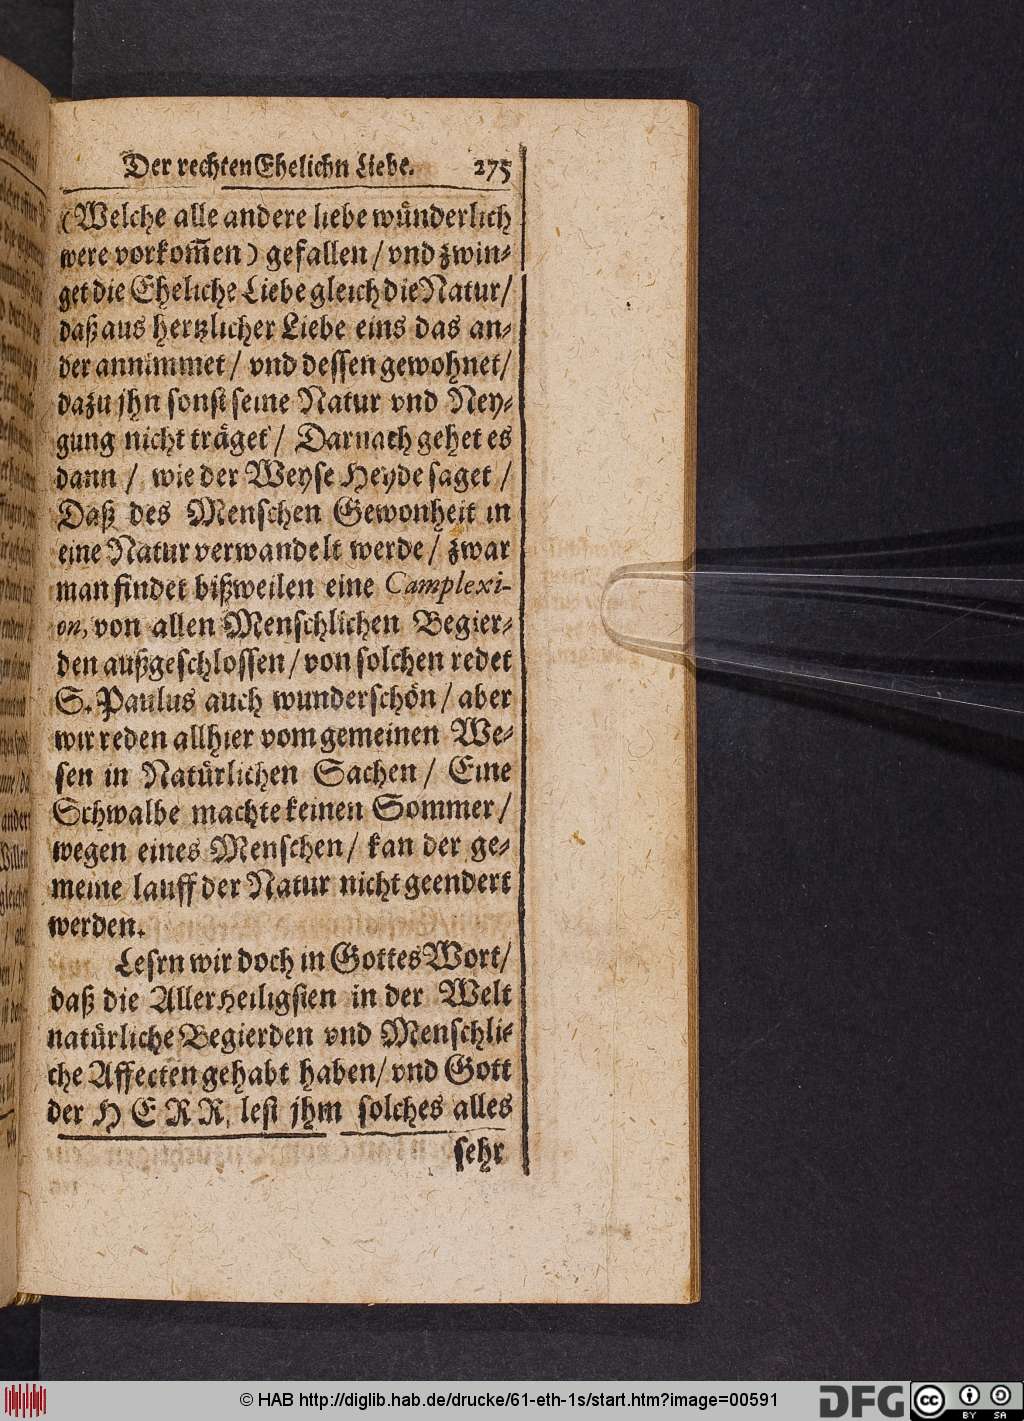 Der rechten Ehelichn Liebe. 275
(Welche alle andere liebe wůnderlich
were vorkom̃en) gefallen / vnd zwin-
get die Eheliche Liebe gleich die Natur /
daß aus hertzlicher Liebe eins das an-
der annimmet / vnd dessen gewohnet /
dazu jhn sonst seine Natur vnd Ney-
gung nicht träget / Darnach gehet es
dann / wie der Weyse Heyde saget /
Daß des Menschen Gewonheit in
eine Natur verwandelt werde / zwar
man findet bißweilen eine Camplexi-
on, von allen Menschlichen Begier-
den außgeschlossen / von solchen redet
S. Paulus auch wunderschön / aber
wir reden allhier vom gemeinen We-
sen in Natürlichen Sachen / Eine
Schwalbe machte keinen Sommer /
wegen eines Menschen / kan der ge-
meine lauff der Natur nicht geendert
werden.
Lesen wir doch in Gottes Wort /
daß die Allerheiligsten in der Welt
natürliche Begierden vnd Menschli-
che Affecten gehabt haben / vnd Gott
der HERR, lest jhm solches alles
sehr
© HAB http://diglib.hab.de/drucke/61-eth-1s/start.htm?image=00591
DFG cc BY SA